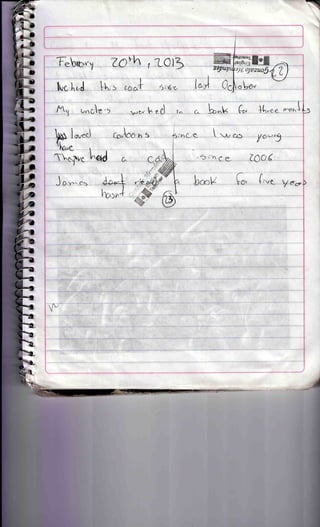 Febrary 20th, 2013
2
He had this coat since last October
My uncle's worked in a bank for three months
loved cartoons since I was young
have
They've had a cat since 2006
James don't read a book for five years
hasn't
23